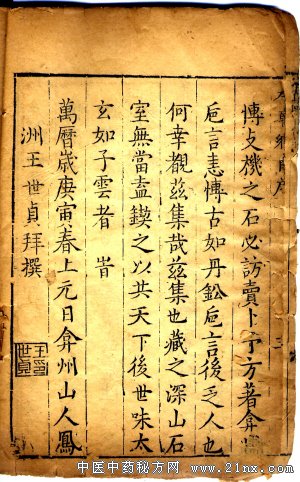 本草綱目序
三
愽支機之石必訪賣卜予方著弇州
卮言恚愽古如丹鈆卮言後乏人也
何幸覩兹集哉兹集也藏之深山石
室無當盍鍥之以共天下後世味太
玄如子雲者 旹
萬曆歲庚寅春上元日弇州山人鳳
洲王世貞拜撰
中医中药秘方网 www.21nx.com